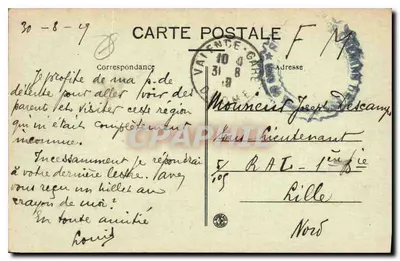 30-8-19
CARTE POSTALE
F M
Correspondance
Adresse
VALENCE-GARE
10
31 8
19
DROME
Je profite de ma p. de
détente pour aller voir des
parents et visiter cette région
qui m'était complètement
inconnue.
Incessamment je répondrai
à votre dernière lettre. Avez
vous reçu un billet au
crayon de moi?
En toute amitié
Louis
Monsieur Joseph Descamps
Sous Lieutenant
5/105 R.A.L - 1ère Bie
Lille
Nord